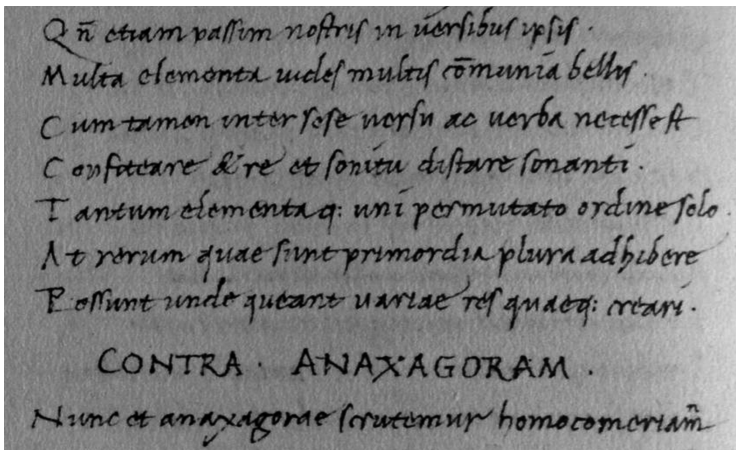 Qn̄ etiam passim nostris in v̄ersibus ipsis ·
Multa elementa uides multis com̄unia bellis ·
Cum tamen inter sese uersu ac uerba necesse st
Confiteare & re et sonitu distare sonanti ·
Tantum elementa q: uni permutato ordine solo ·
At rerum quae sunt primordia plura adhibere
Possunt unde queant uariae res quaeq: creari ·
CONTRA · ANAXAGORAM ·
Nunc et anaxagorae scrutemur homocomeriam̄